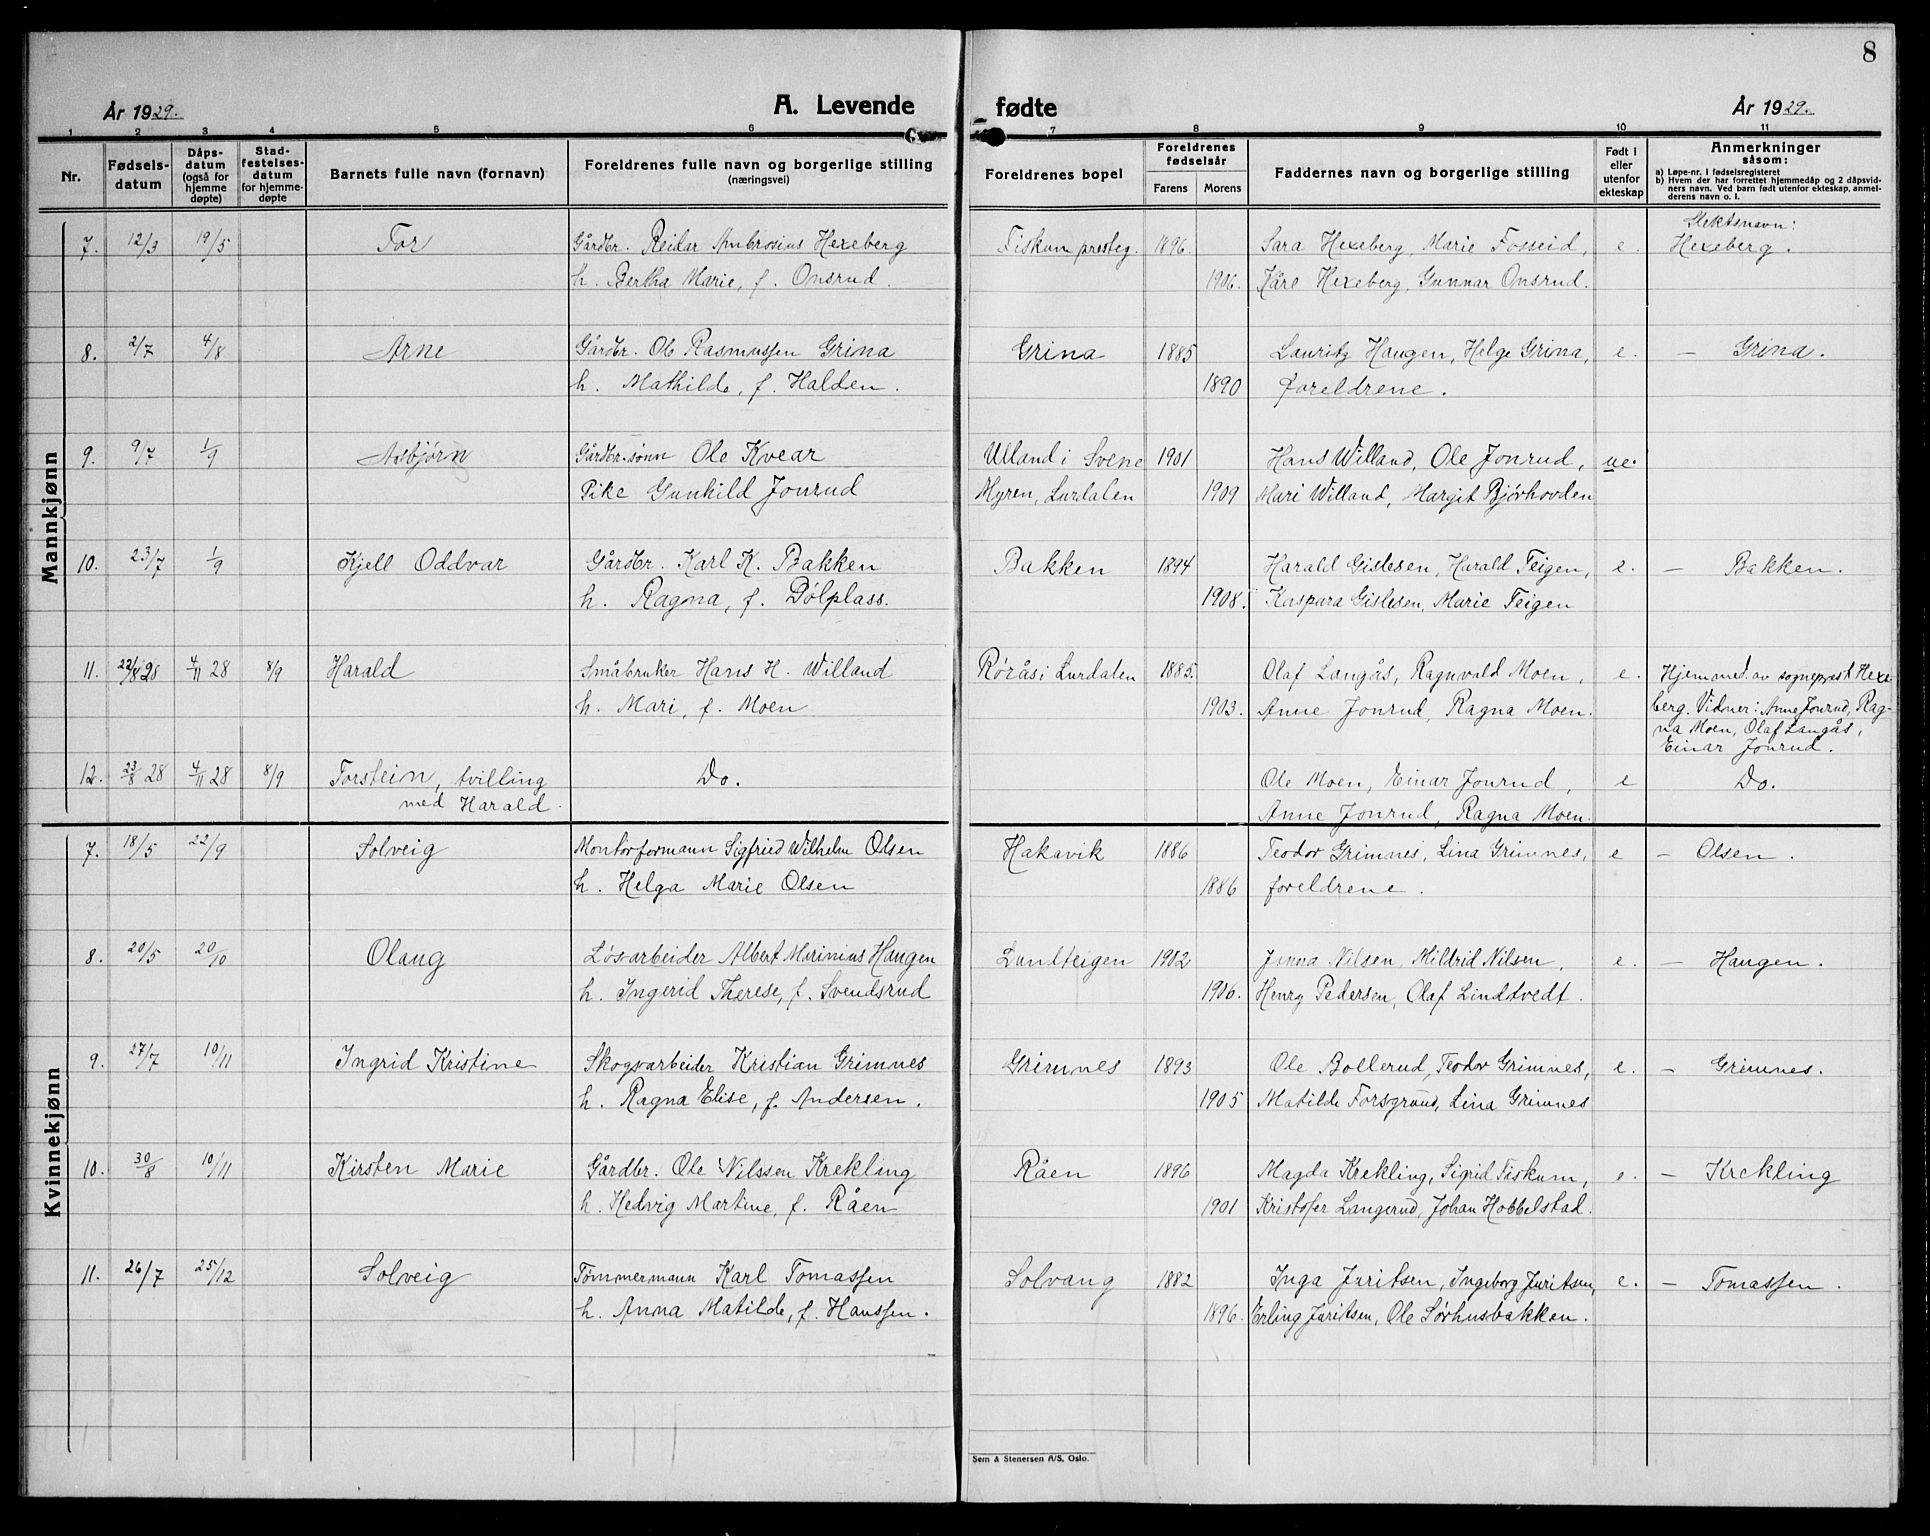 8
År 1929. A. Levende fødte År 1929.
1 2 3 4 5 6 7 8 9 10 11
Nr. Fødsels-datum Dåps-datum (også for hjemme døpte) Stad-festelses-datum for hjemme-døpte Barnets fulle navn (fornavn) Foreldrenes fulle navn og borgerlige stilling (næringsvei) Foreldrenes bopel Foreldrenes fødselsår Farens Morens Faddernes navn og borgerlige stilling Født i eller utenfor ekteskap Anmerkninger såsom: a) Løpe-nr. i fødselsregisteret b) Hvem der har forrettet hjemmedåp og 2 dåpsvidners navn. Ved barn født utenfor ekteskap, anmelderens navn o. l.
Mannkjønn
Slektsnavn:
7. 12/3 19/5 Tor Gårdbr. Reidar Ambrosius Hexeberg Fiskum presteg. 1896. Sara Hexeberg, Marie Fosseid, e. Hexeberg.
h. Bertha Marie, f. Onsrud. 1906. Kåre Hexeberg, Gunnar Onsrud.
8. 2/7 4/8 Arne Gårdbr. Ole Rasmussen Grina Grina 1885 Lauritz Haugen, Helge Grina, e. — Grina.
h. Mathilde, f. Halden. 1890 foreldrene.
9. 9/7 1/9 Asbjørn Gårdbr.sønn Ole Kvear Ulland i Svene 1901 Hans Willand, Ole Jonrud, ue.
Pike Gunhild Jonrud Myren, Lurdalen 1909 Mari Willand, Margit Bjørhovden
10. 23/7 1/9 Kjell Oddvar Gårdbr. Karl K. Bakken Bakken 1894 Harald Gislesen, Harald Teigen, e. — Bakken.
h. Ragna, f. Dølplass. 1908. Kaspara Gislesen, Marie Teigen
11. 22/8 28 4/11 28 8/9 Harald Småbruker Hans H. Willand Rørås i Lurdalen 1885. Olaf Langås, Ragnvald Moen, e. Hjemmed. av sogneprest Hexe-
h. Mari, f. Moen 1903. Anne Jonrud, Ragna Moen. berg. Vidner: Anne Jonrud, Rag-
na Moen, Olaf Langås,
Einar Jonrud.
12. 23/8 28 4/11 28 8/9 Torstein, tvilling Do. Ole Moen, Einar Jonrud, e Do.
med Harald. Anne Jonrud, Ragna Moen.
Kvinnekjønn
7. 18/5 22/9 Solveig Montørformann Sigfried Wilhelm Olsen Hakavik 1886 Teodor Grimnes, Lina Grimnes, e — Olsen.
h. Helga Marie Olsen 1886 foreldrene.
8. 20/5 20/10 Olaug Løsarbeider Albert Marinius Haugen Lundteigen 1902 Jenna Nilsen, Mildrid Nilsen, e. — Haugen.
h. Ingerid Therese, f. Svendsrud 1906. Henry Pedersen, Olaf Lindtvedt.
9. 27/7 10/11 Ingrid Kristine Skogsarbeider Kristian Grimnes Grimnes 1893 Ole Bollerud, Teodor Grimnes, e. — Grimnes.
h. Ragna Elise, f. Andersen. 1905 Matilde Forsgrund, Lina Grimnes
10. 30/8 10/11 Kirsten Marie Gårdbr. Ole Nilssen Krekling Råen 1896 Magda Krekling, Sigrid Fiskum, e. — Krekling
h. Hedvig Martine, f. Råen 1901 Kristofer Langerud, Johan Hobbelstad.
11. 26/7 25/12 Solveig Tømmermann Karl Tomassen Solvang 1882 Inga Juritsen, Ingeborg Juritsen, e. — Tomassen.
h. Anna Matilde, f. Hanssen. 1896. Erling Juritsen, Ole Sørhusbakken.
Sem & Stenersen A/S, Oslo.